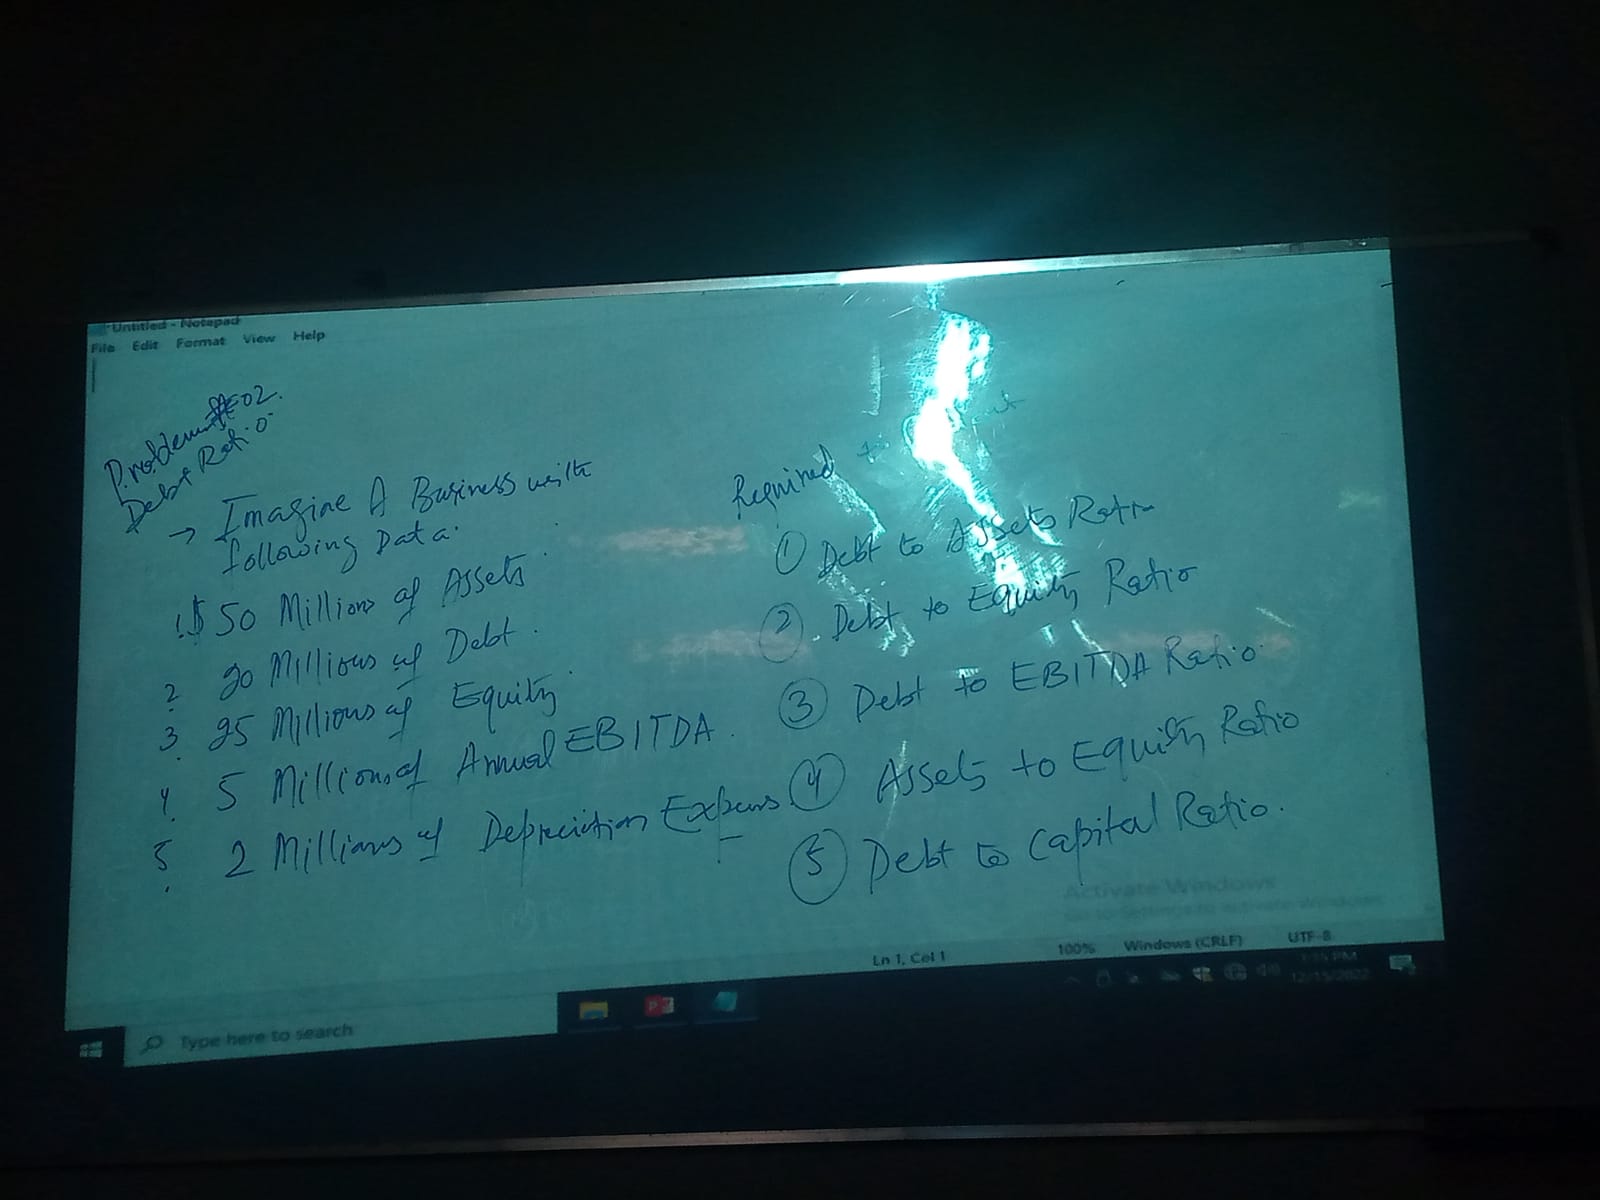 Untitled - Notepad
File Edit Format View Help
Problem #02.
Debt Ratio
→ Imagine A Business with
following Data.
1. $ 50 Millions of Assets.
2. 20 Millions of Debt.
3. 25 Millions of Equity.
4. 5 Millions of Annual EBITDA.
5. 2 Millions of Depreciation Expens
Required to
① Debt to Assets Ratio
② Debt to Equity Ratio
③ Debt to EBITDA Ratio.
④ Assets to Equity Ratio
⑤ Debt to Capital Ratio.
Activate Windows
Go to Settings to activate Windows.
Ln 1, Col 1 100% Windows (CRLF) UTF-8
Type here to search
12/15/2022